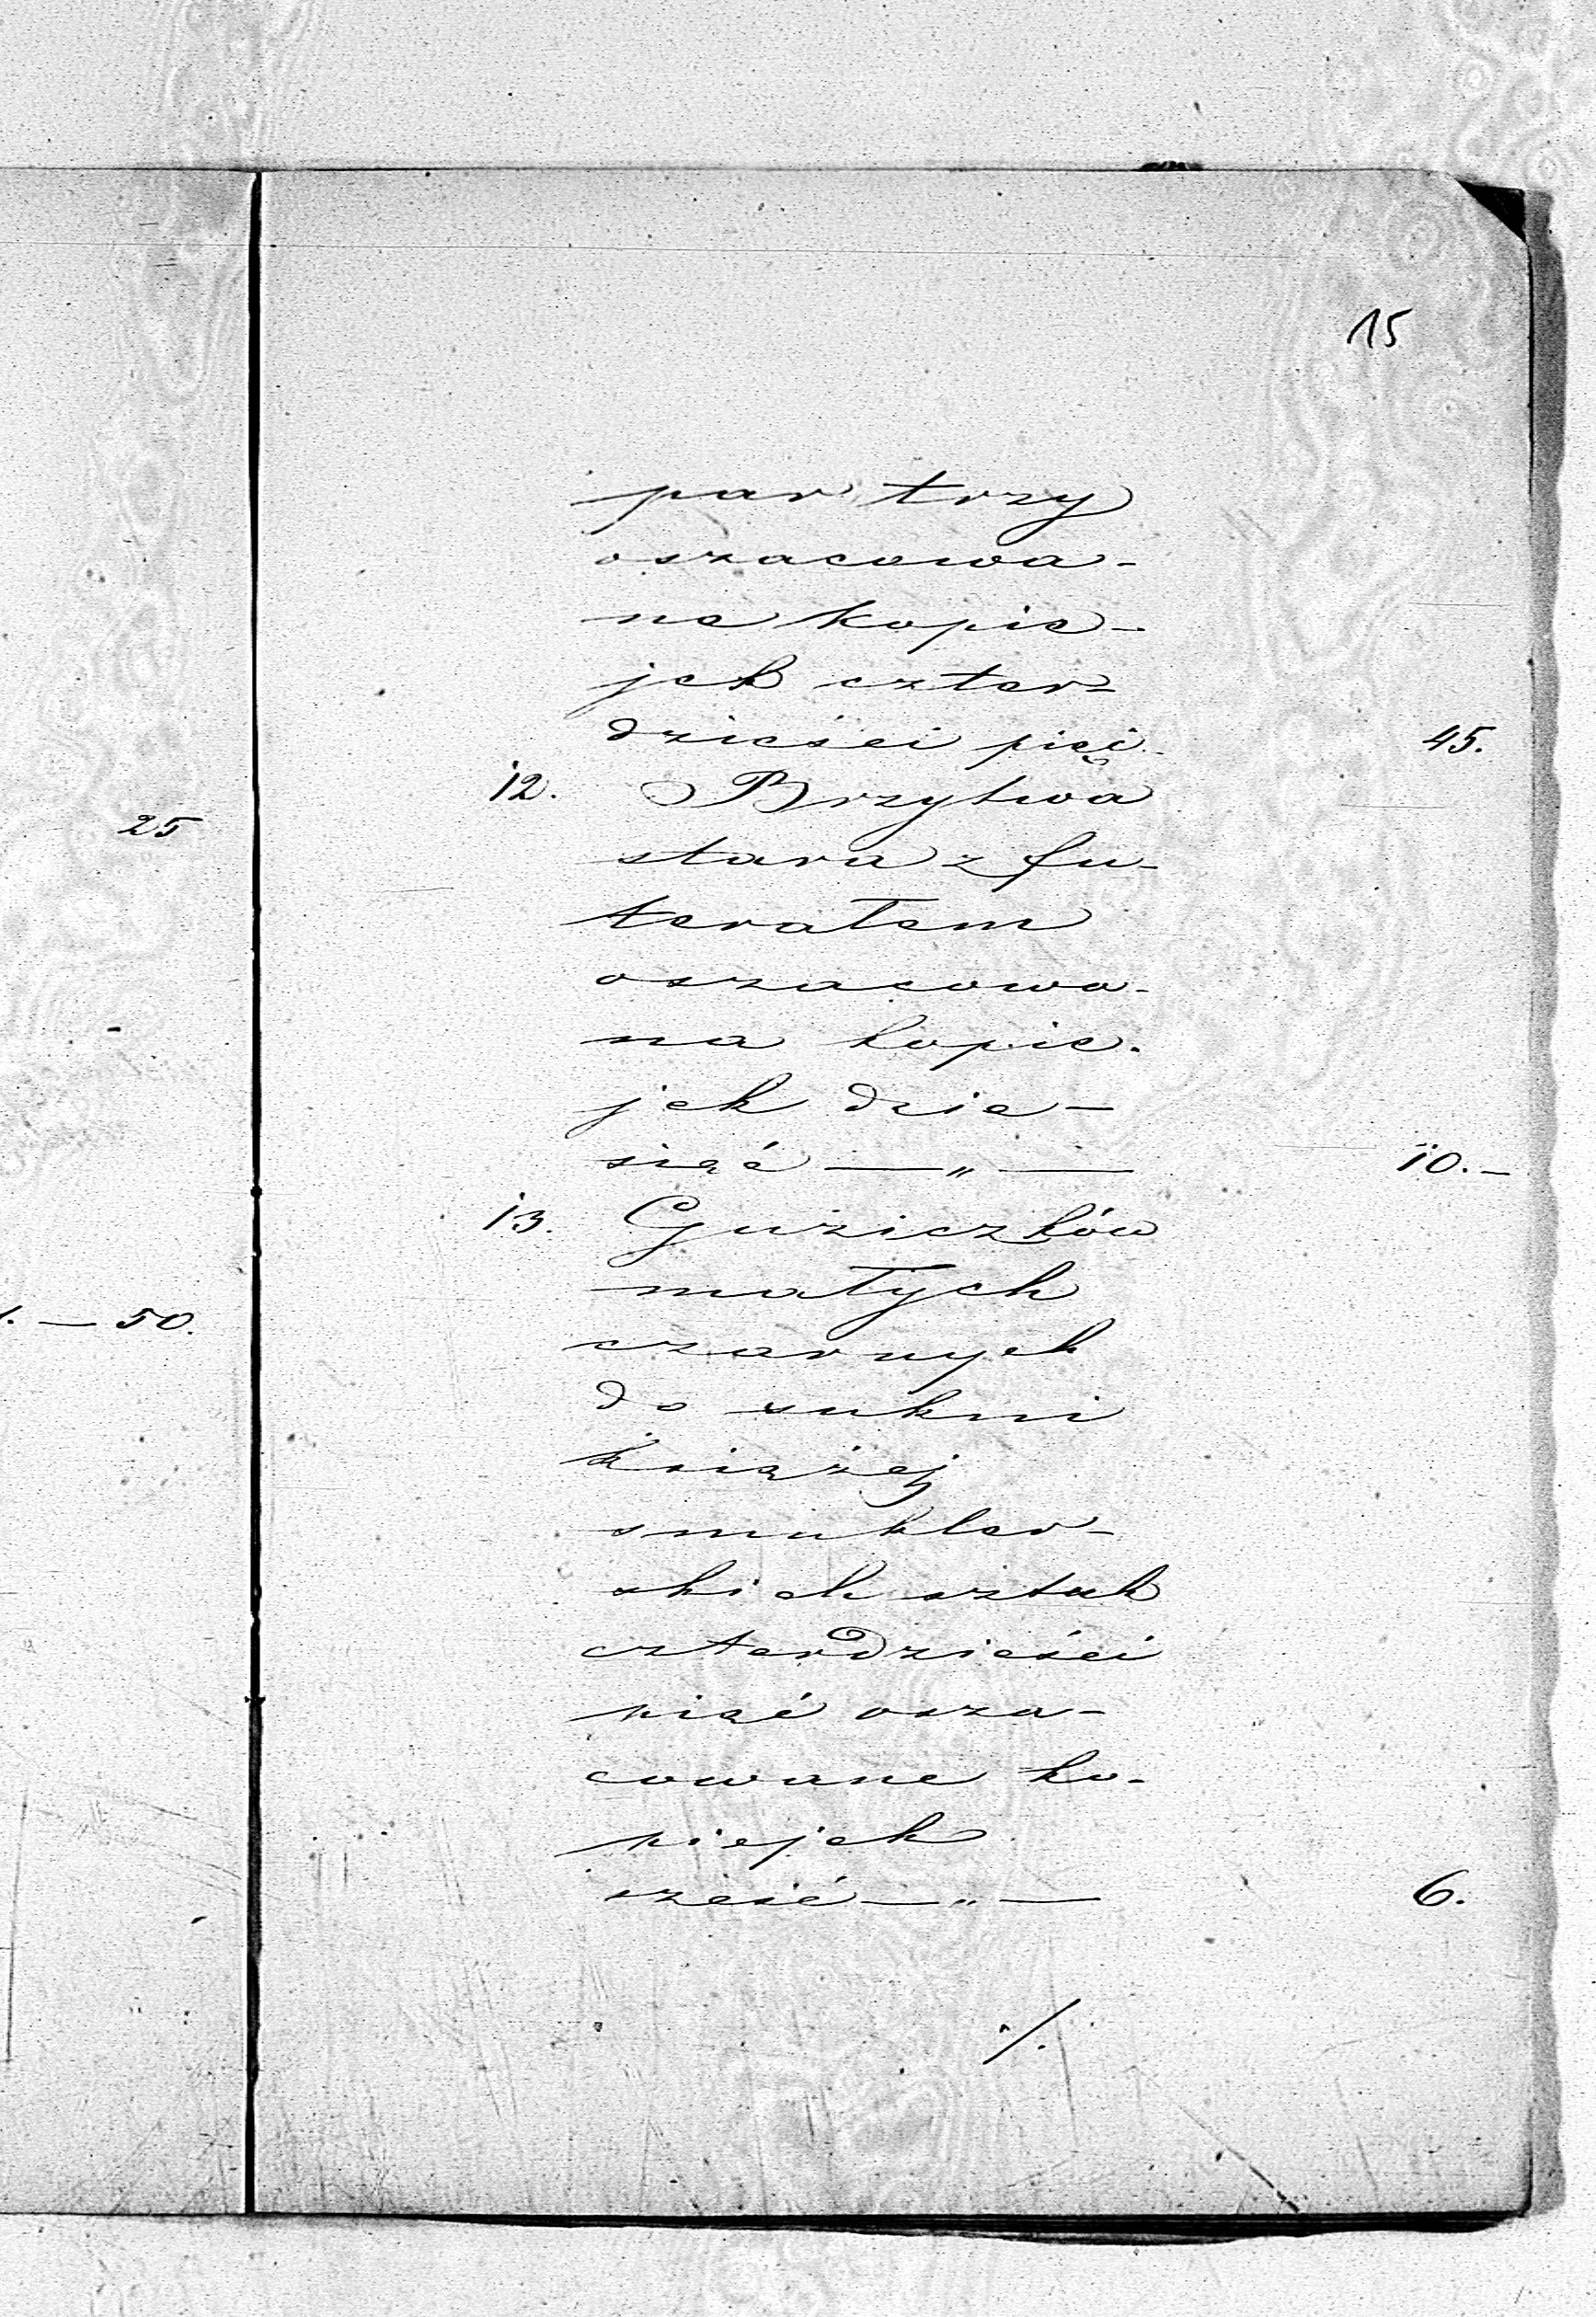 15
par trzy
oszacowa-
ne kopie-
jek czter-
dzieści pięć
45.
12. Brzytwa
25
stara z fu-
terałem
oszacowa-
na kopie-
jek dzie-
sięć — „ —
10. —
13. Guziczków
małych
— 50.
czarnych
do sukni
książej
smukler-
skich sztuk
czterdzieści
pięć osza-
cowane ko-
piejek
sześć — „ —
6.
./.